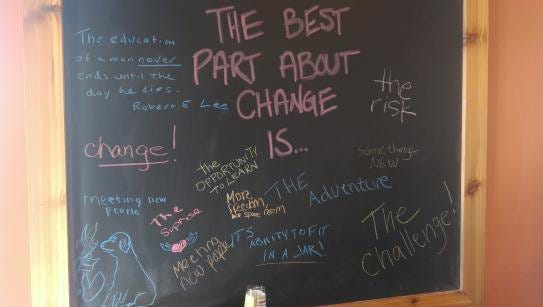 THE BEST
PART ABOUT
CHANGE
IS...
The education
of a man never
ends until the
day he dies.
Robert E Lee
the
risk
change!
The
OPPORTUNITY
TO LEARN
Something
NEW
meeting new
people
The
Suprise
More
freedom
THE Adventure
Meeting
new people
IT'S
ABILITY TO FIT
IN A JAR!
The
challenge!